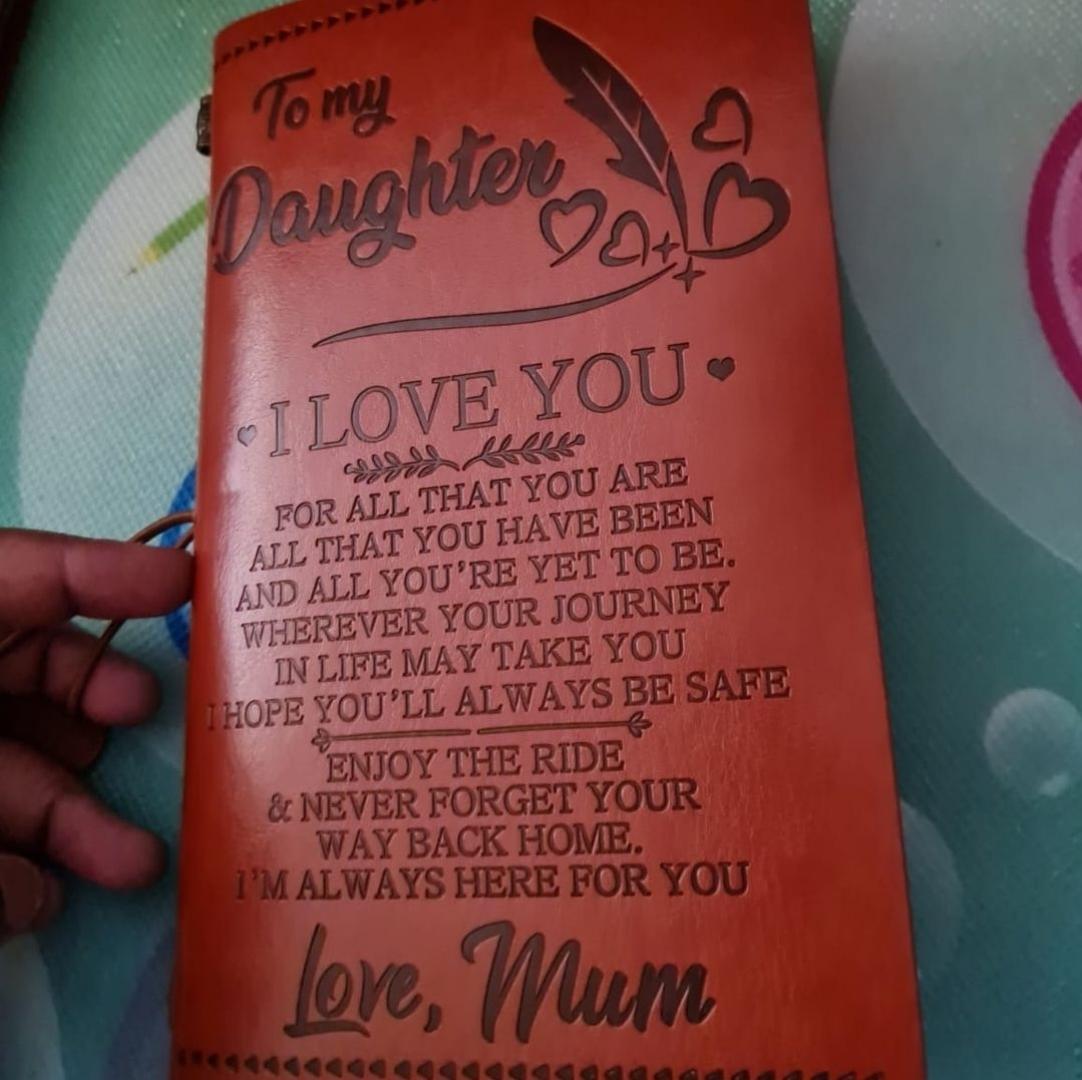 To my
Daughter
I LOVE YOU
FOR ALL THAT YOU ARE
ALL THAT YOU HAVE BEEN
AND ALL YOU'RE YET TO BE.
WHEREVER YOUR JOURNEY
IN LIFE MAY TAKE YOU
I HOPE YOU'LL ALWAYS BE SAFE
ENJOY THE RIDE
& NEVER FORGET YOUR
WAY BACK HOME.
I'M ALWAYS HERE FOR YOU
Love, Mum